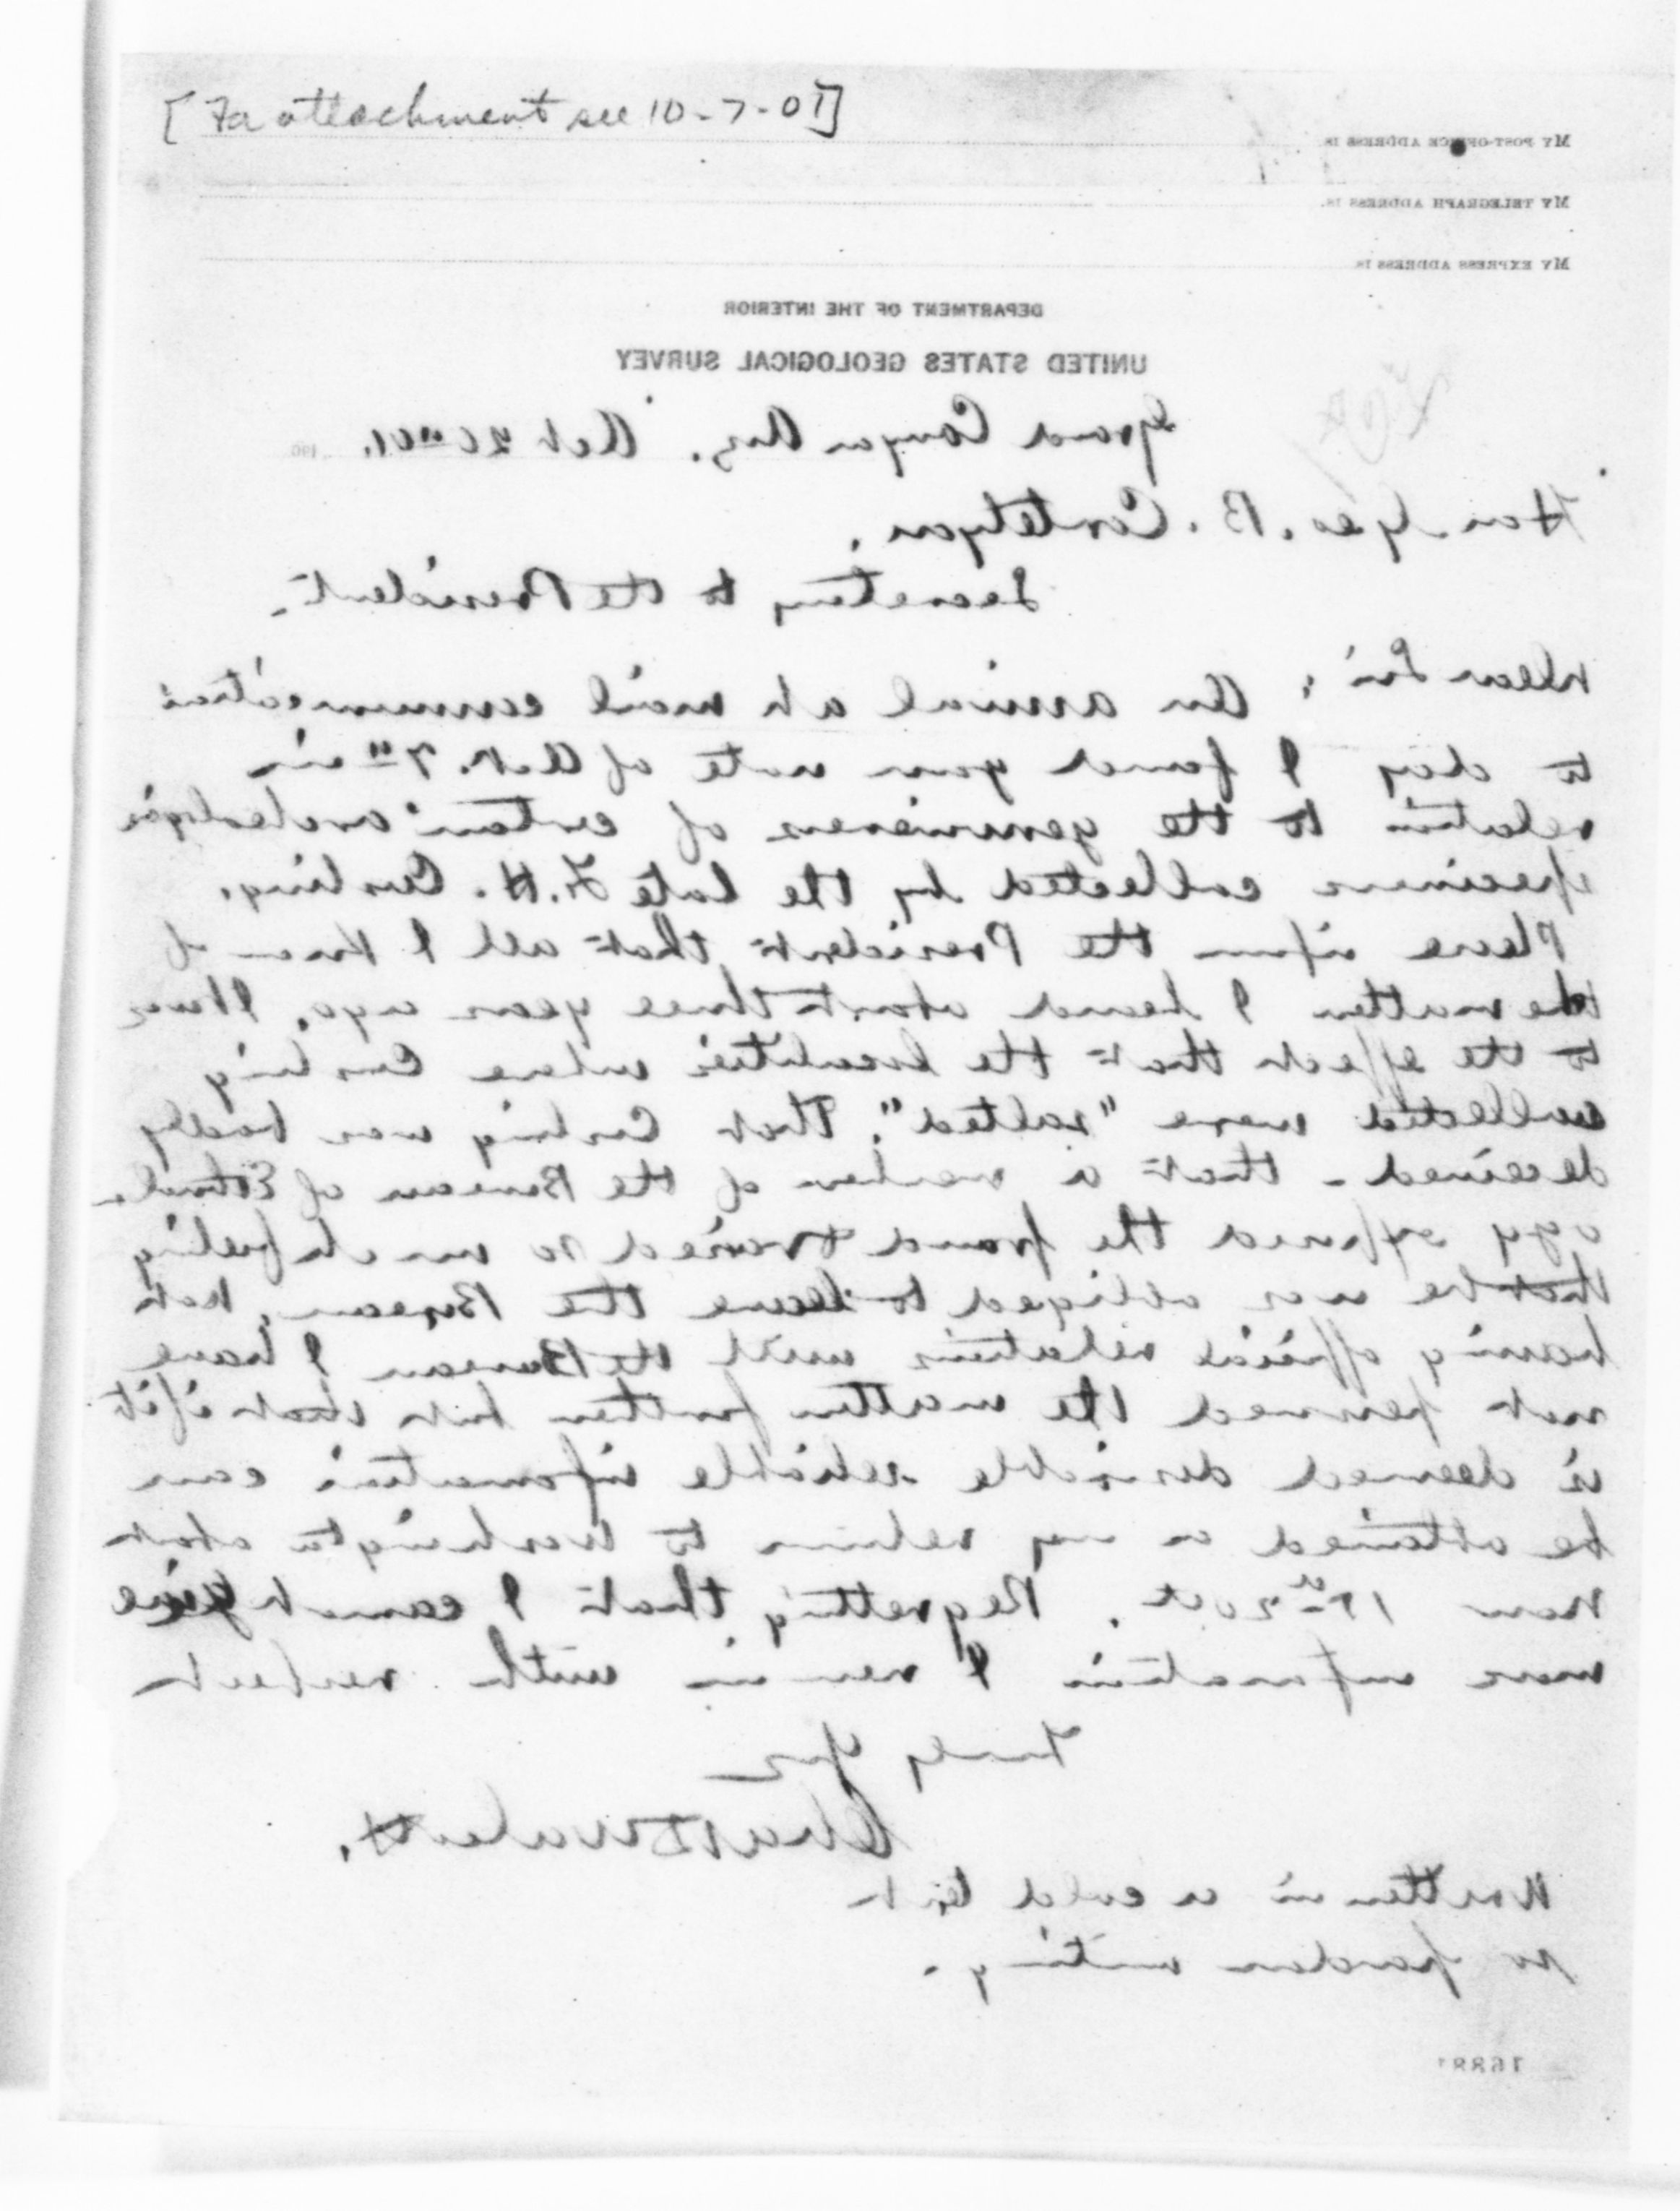 [For attachment see 10-7-01]
MY POST-OFFICE ADDRESS IS
MY TELEGRAPH ADDRESS IS
MY EXPRESS ADDRESS IS
DEPARTMENT OF THE INTERIOR
UNITED STATES GEOLOGICAL SURVEY
Grand Canyon Ariz. Oct 20" 01. 190
Hon Geo. B. Cortelyou,
Secretary to the President.
Dear Sir; On arrival at mail communication
to day I found your note of Oct. 7" in
relation to the genuineness of certain archeologic
specimens collected by the late F. H. Cushing.
Please inform the President that all I know of
the matter I heard about three years ago. It was
to the effect that the localities where Cushing
collected were "salted". That Cushing was badly
deceived - that a member of the Bureau of Ethnol-
ogy exposed the fraud & raised so much feeling
that he was obliged to leave the Bureau. Not
having official relations with the Bureau I have
not pursued the matter further but that if it
is deemed desirable reliable information can
be obtained on my return to Washington about
Nov 1st. Regretting that I cannot give
more information I remain with respect
Truly Yrs
Chas D Walcott.
Written in a cold tent
so pardon writing.
16881